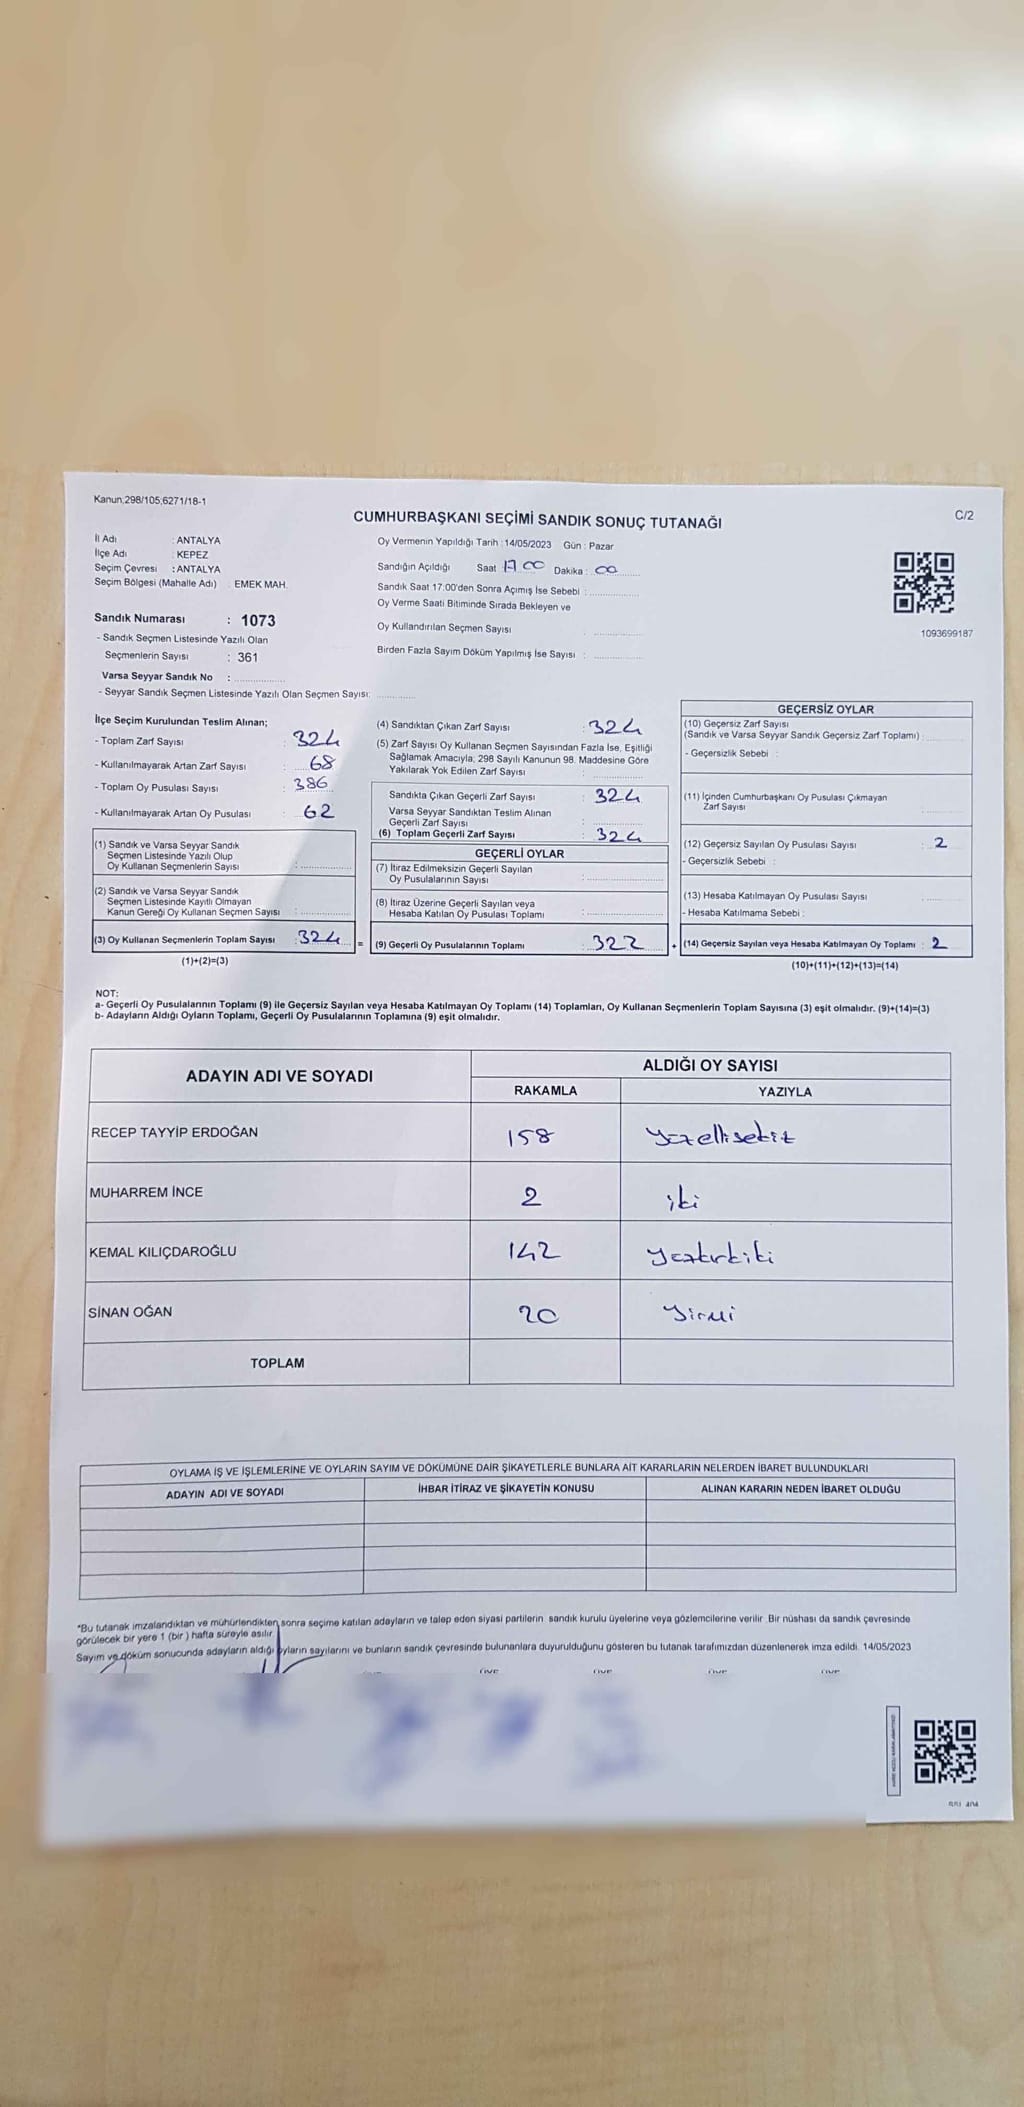 Kanun;298/105,6271/18-1
C/2
CUMHURBAŞKANI SEÇİMİ SANDIK SONUÇ TUTANAĞI
İl Adı : ANTALYA
İlçe Adı : KEPEZ
Seçim Çevresi : ANTALYA
Seçim Bölgesi (Mahalle Adı) : EMEK MAH.
Sandık Numarası : 1073
- Sandık Seçmen Listesinde Yazılı Olan
Seçmenlerin Sayısı : 361
Varsa Seyyar Sandık No :
- Seyyar Sandık Seçmen Listesinde Yazılı Olan Seçmen Sayısı:
Oy Vermenin Yapıldığı Tarih : 14/05/2023 Gün : Pazar
Sandığın Açıldığı Saat : 17 00 Dakika : 00
Sandık Saat 17:00'den Sonra Açımış İse Sebebi :
Oy Verme Saati Bitiminde Sırada Bekleyen ve
Oy Kullandırılan Seçmen Sayısı :
Birden Fazla Sayım Döküm Yapılmış İse Sayısı :
1093699187
İlçe Seçim Kurulundan Teslim Alınan;
- Toplam Zarf Sayısı : 324
- Kullanılmayarak Artan Zarf Sayısı : 68
- Toplam Oy Pusulası Sayısı : 386
- Kullanılmayarak Artan Oy Pusulası : 62
(1) Sandık ve Varsa Seyyar Sandık
Seçmen Listesinde Yazılı Olup
Oy Kullanan Seçmenlerin Sayısı :
(2) Sandık ve Varsa Seyyar Sandık
Seçmen Listesinde Kayıtlı Olmayan
Kanun Gereği Oy Kullanan Seçmen Sayısı :
(3) Oy Kullanan Seçmenlerin Toplam Sayısı : 324 =
(1)+(2)=(3)
(4) Sandıktan Çıkan Zarf Sayısı : 324
(5) Zarf Sayısı Oy Kullanan Seçmen Sayısından Fazla İse, Eşitliği
Sağlamak Amacıyla, 298 Sayılı Kanunun 98. Maddesine Göre
Yakılarak Yok Edilen Zarf Sayısı :
Sandıkta Çıkan Geçerli Zarf Sayısı : 324
Varsa Seyyar Sandıktan Teslim Alınan
Geçerli Zarf Sayısı :
(6) Toplam Geçerli Zarf Sayısı : 324
GEÇERLİ OYLAR
(7) İtiraz Edilmeksizin Geçerli Sayılan
Oy Pusulalarının Sayısı :
(8) İtiraz Üzerine Geçerli Sayılan veya
Hesaba Katılan Oy Pusulası Toplamı :
(9) Geçerli Oy Pusulalarının Toplamı : 322 +
GEÇERSİZ OYLAR
(10) Geçersiz Zarf Sayısı
(Sandık ve Varsa Seyyar Sandık Geçersiz Zarf Toplamı) :
- Geçersizlik Sebebi :
(11) İçinden Cumhurbaşkanı Oy Pusulası Çıkmayan
Zarf Sayısı
(12) Geçersiz Sayılan Oy Pusulası Sayısı : 2
- Geçersizlik Sebebi :
(13) Hesaba Katılmayan Oy Pusulası Sayısı
- Hesaba Katılmama Sebebi :
(14) Geçersiz Sayılan veya Hesaba Katılmayan Oy Toplamı : 2
(10)+(11)+(12)+(13)=(14)
NOT:
a- Geçerli Oy Pusulalarının Toplamı (9) ile Geçersiz Sayılan veya Hesaba Katılmayan Oy Toplamı (14) Toplamları, Oy Kullanan Seçmenlerin Toplam Sayısına (3) eşit olmalıdır. (9)+(14)=(3)
b- Adayların Aldığı Oyların Toplamı, Geçerli Oy Pusulalarının Toplamına (9) eşit olmalıdır.
ADAYIN ADI VE SOYADI
ALDIĞI OY SAYISI
RAKAMLA YAZIYLA
RECEP TAYYİP ERDOĞAN 158 yüzellisekiz
MUHARREM İNCE 2 iki
KEMAL KILIÇDAROĞLU 142 yüzkırkiki
SİNAN OĞAN 20 yirmi
TOPLAM
OYLAMA İŞ VE İŞLEMLERİNE VE OYLARIN SAYIM VE DÖKÜMÜNE DAİR ŞİKAYETLERLE BUNLARA AİT KARARLARIN NELERDEN İBARET BULUNDUKLARI
ADAYIN ADI VE SOYADI İHBAR İTİRAZ VE ŞİKAYETİN KONUSU ALINAN KARARIN NEDEN İBARET OLDUĞU
*Bu tutanak imzalandıktan ve mühürlendikten sonra seçime katılan adayların ve talep eden siyasi partilerin sandık kurulu üyelerine veya gözlemcilerine verilir. Bir nüshası da sandık çevresinde
görülecek bir yere 1 (bir ) hafta süreyle asılır.
Sayım ve döküm sonucunda adayların aldığı oyların sayılarını ve bunların sandık çevresinde bulunanlara duyurulduğunu gösteren bu tutanak tarafımızdan düzenlenerek imza edildi. 14/05/2023